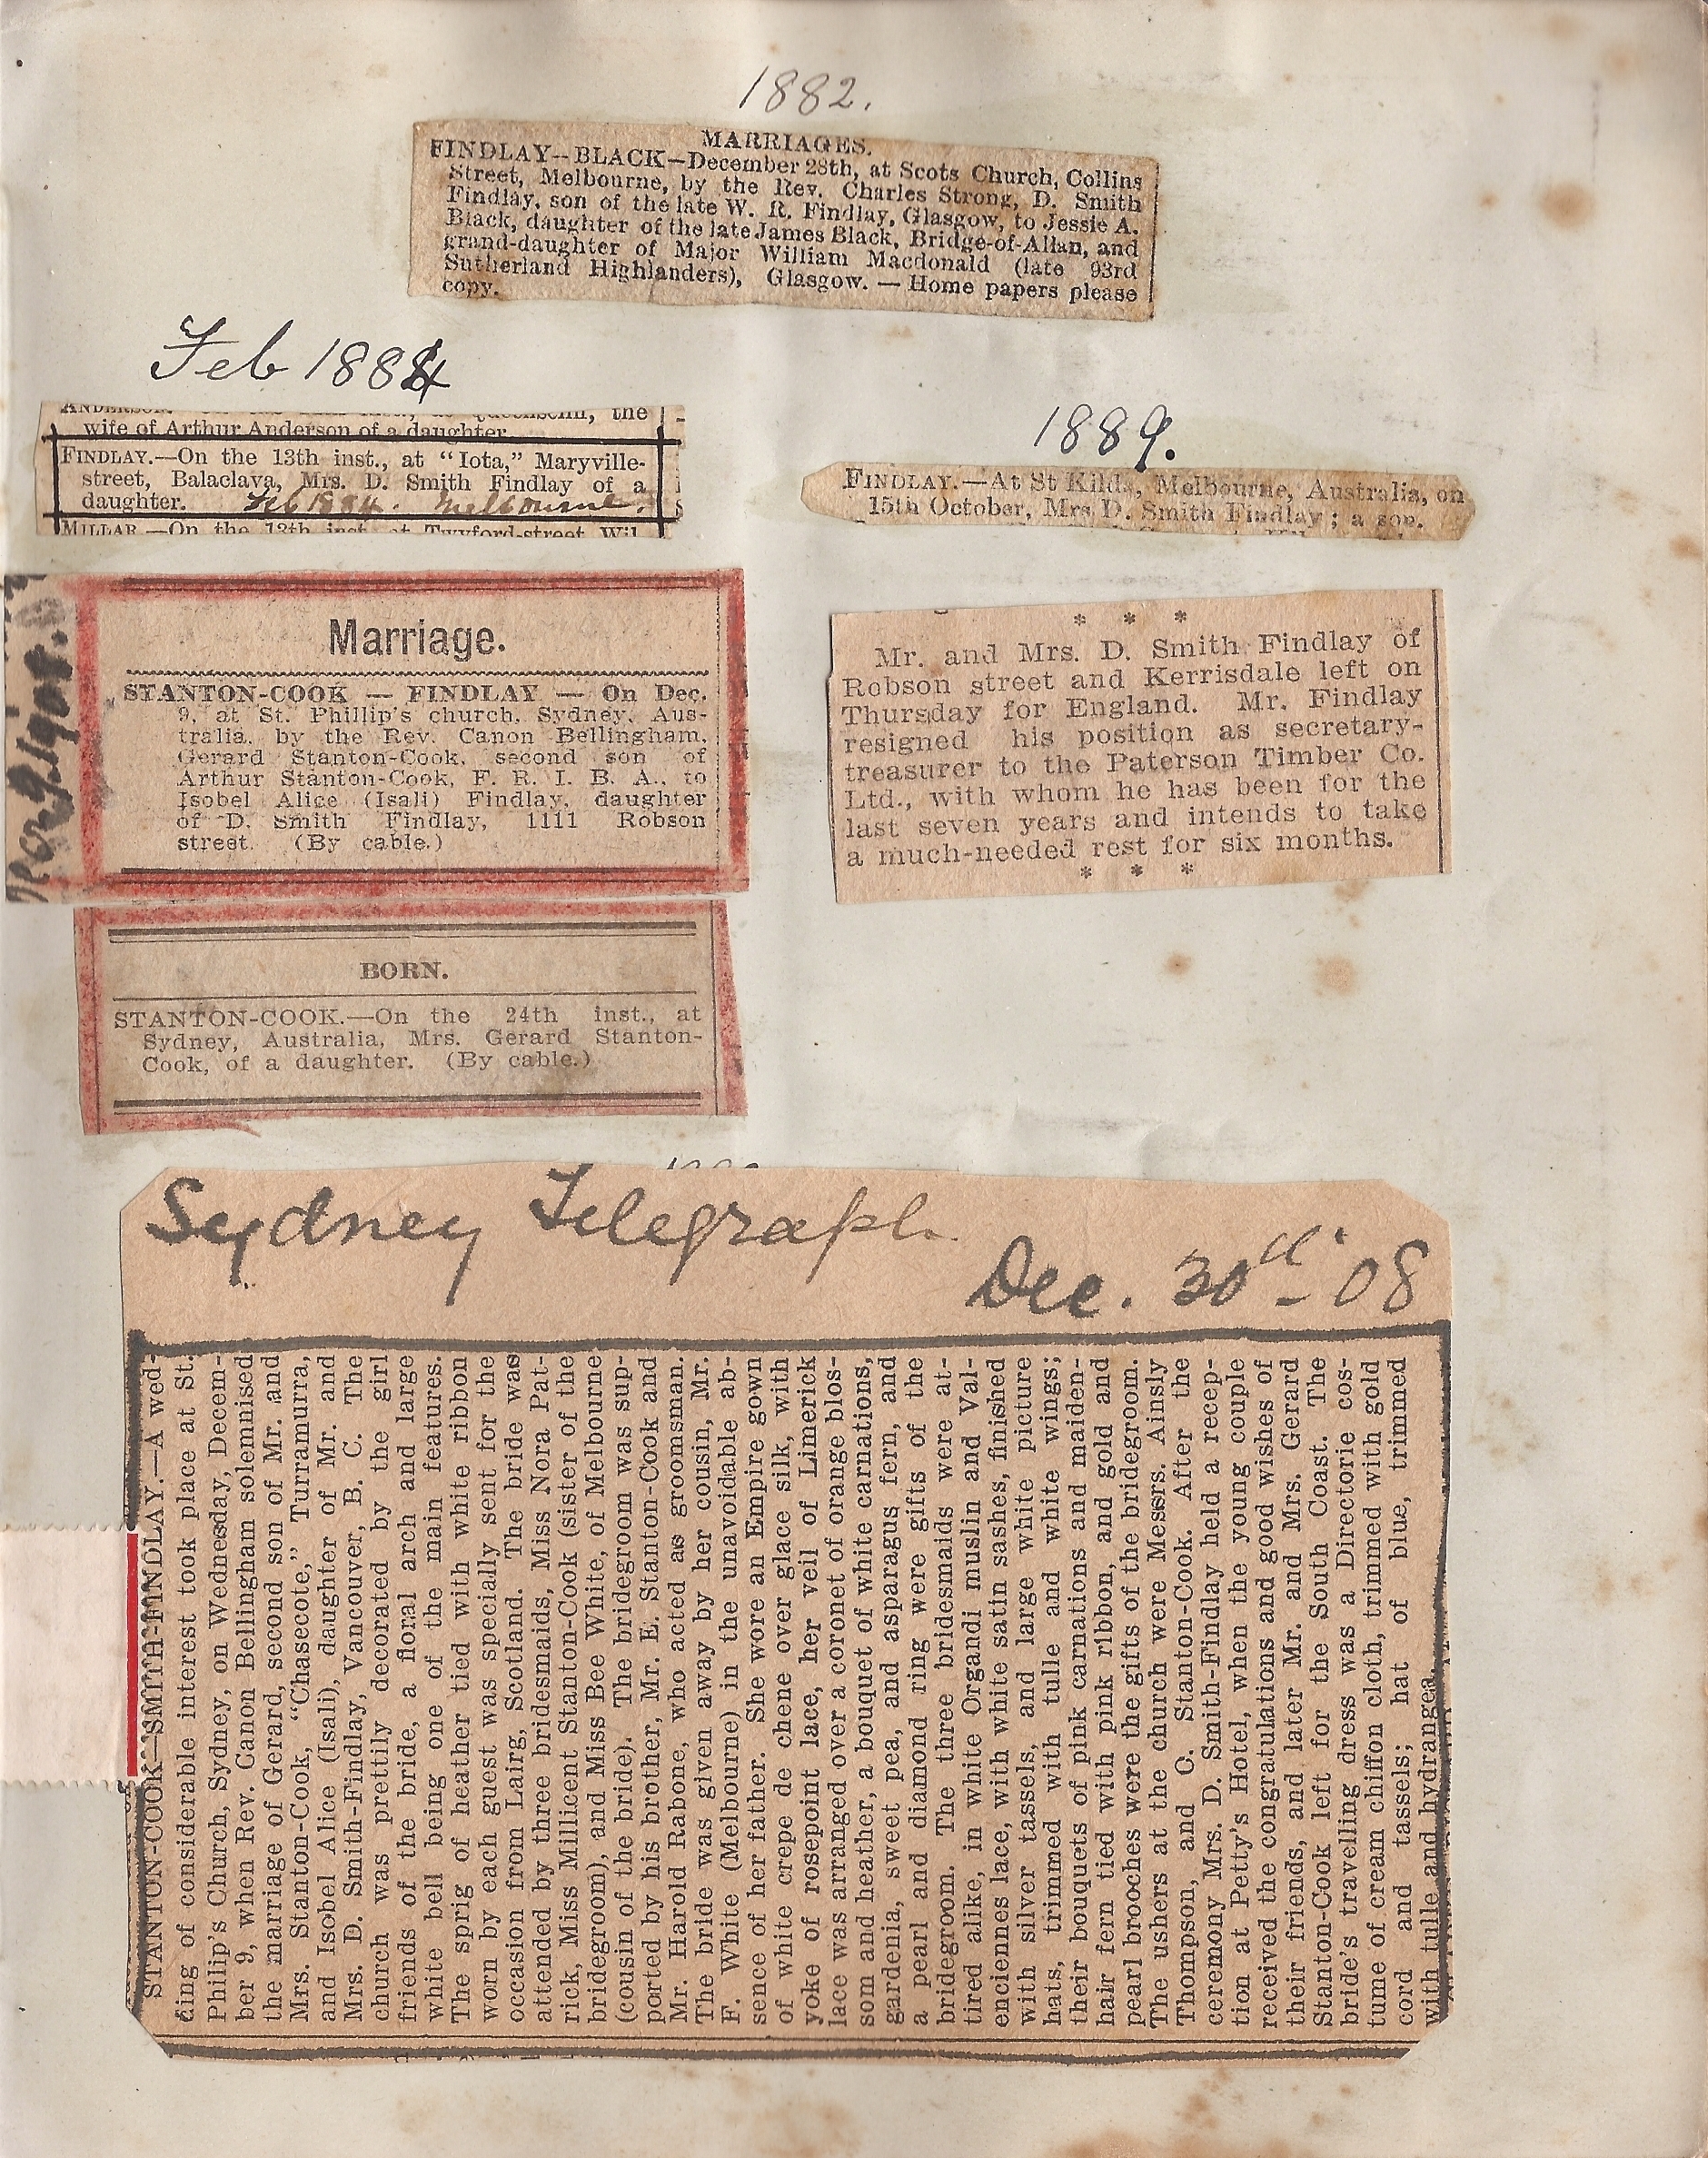 1882.
MARRIAGES.
FINDLAY--BLACK—December 28th, at Scots Church, Collins
Street, Melbourne, by the Rev. Charles Strong, D. Smith
Findlay, son of the late W. R. Findlay, Glasgow, to Jessie A.
Black, daughter of the late James Black, Bridge-of-Allan, and
grand-daughter of Major William Macdonald (late 93rd
Sutherland Highlanders), Glasgow. — Home papers please
copy.
Feb 1884
the
wife of Arthur Anderson of a daughter.
FINDLAY.—On the 13th inst., at "Iota," Maryville-
street, Balaclava, Mrs. D. Smith Findlay of a
daughter. Feb 1884. Melbourne.
MILLAR.—On the 13th inst. at Twyford-street Wil
1889.
FINDLAY.—At St Kilda, Melbourne, Australia, on
15th October, Mrs D. Smith Findlay; a son.
Marriage.
STANTON-COOK — FINDLAY — On Dec.
9, at St. Phillip's church, Sydney, Aus-
tralia, by the Rev. Canon Bellingham,
Gerard Stanton-Cook, second son of
Arthur Stanton-Cook, F. R. I. B. A., to
Isobel Alice (Isali) Findlay, daughter
of D. Smith Findlay, 1111 Robson
street. (By cable.)
* * *
Mr. and Mrs. D. Smith Findlay of
Robson street and Kerrisdale left on
Thursday for England. Mr. Findlay
resigned his position as secretary-
treasurer to the Paterson Timber Co.
Ltd., with whom he has been for the
last seven years and intends to take
a much-needed rest for six months.
* * *
BORN.
STANTON-COOK.—On the 24th inst., at
Sydney, Australia, Mrs. Gerard Stanton-
Cook, of a daughter. (By cable.)
Sydney Telegraph
Dec. 30th - 08
STANTON-COOK—SMITH-FINDLAY.—A wed-
ding of considerable interest took place at St.
Philip's Church, Sydney, on Wednesday, Decem-
ber 9, when Rev. Canon Bellingham solemnised
the marriage of Gerard, second son of Mr. and
Mrs. Stanton-Cook, "Chasecote," Turramurra,
and Isobel Alice (Isali), daughter of Mr. and
Mrs. D. Smith-Findlay, Vancouver, B. C. The
church was prettily decorated by the girl
friends of the bride, a floral arch and large
white bell being one of the main features.
The sprig of heather tied with white ribbon
worn by each guest was specially sent for the
occasion from Lairg, Scotland. The bride was
attended by three bridesmaids, Miss Nora Pat-
rick, Miss Millicent Stanton-Cook (sister of the
bridegroom), and Miss Bee White, of Melbourne
(cousin of the bride). The bridegroom was sup-
ported by his brother, Mr. E. Stanton-Cook and
Mr. Harold Rabone, who acted as groomsman.
The bride was given away by her cousin, Mr.
F. White (Melbourne) in the unavoidable ab-
sence of her father. She wore an Empire gown
of white crepe de chene over glace silk, with
yoke of rosepoint lace, her veil of Limerick
lace was arranged over a coronet of orange blos-
som and heather, a bouquet of white carnations,
gardenia, sweet pea, and asparagus fern, and
a pearl and diamond ring were gifts of the
bridegroom. The three bridesmaids were at-
tired alike, in white Organdi muslin and Val-
enciennes lace, with white satin sashes, finished
with silver tassels, and large white picture
hats, trimmed with tulle and white wings;
their bouquets of pink carnations and maiden-
hair fern tied with pink ribbon, and gold and
pearl brooches were the gifts of the bridegroom.
The ushers at the church were Messrs. Ainsly
Thompson, and C. Stanton-Cook. After the
ceremony Mrs. D. Smith-Findlay held a recep-
tion at Petty's Hotel, when the young couple
received the congratulations and good wishes of
their friends, and later Mr. and Mrs. Gerard
Stanton-Cook left for the South Coast. The
bride's travelling dress was a Directorie cos-
tume of cream chiffon cloth, trimmed with gold
cord and tassels; hat of blue, trimmed
with tulle and hydrangea.